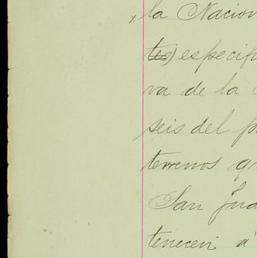 la Nacion
tes) especifi
va de la
seis del p
terrenos q
San Jua
tenecen á